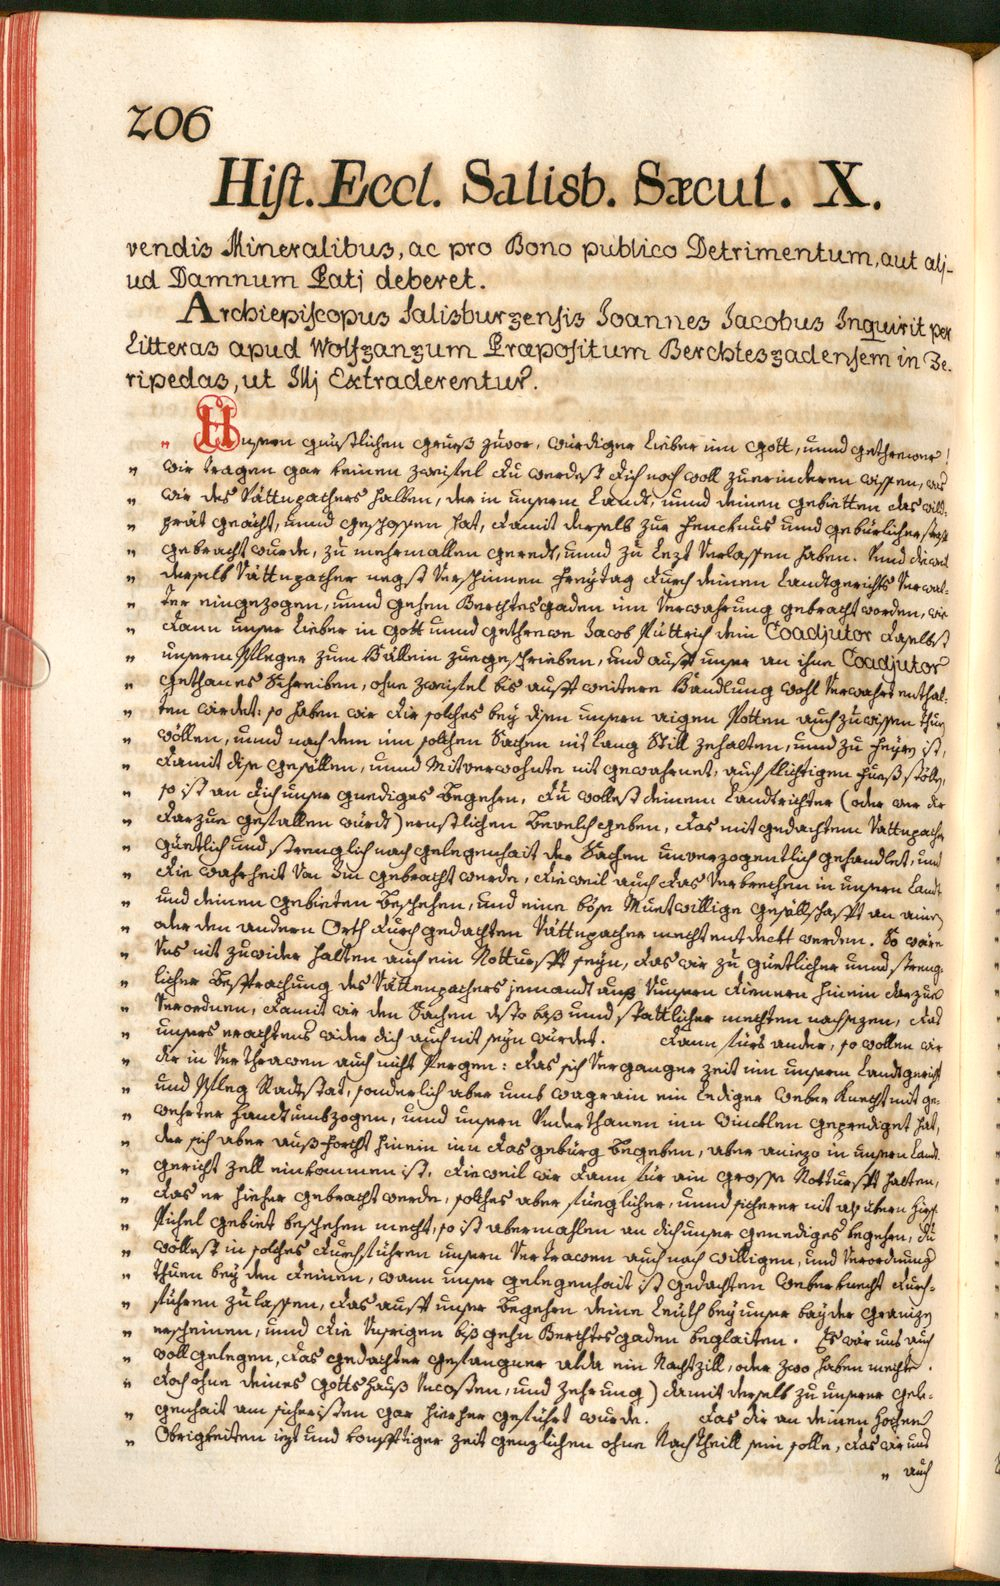 206
Hist. Eccl. Salisb. Sæcul. X.
vendis Mineralibus, ac pro Bono publico Detrimentum, aut ali-
ud Damnum Pati deberet.
Archiepiscopus Salisburgensis Joannes Jacobus Inquirit per
Litteras apud Wolfgangum Præpositum Berchtesgadensem in Ze-
ripedas, ut Illi Extraderentur.
" Unsern günstlichen grues zuvor, würdiger Lieber inn Gott, unnd gethrewer!
" wir tragen gar keinen zweifel du werdest dich noch woll zuerinderen wissen, was
" wir des Vättnpachers halben, der in unserm Landt, unnd deinen gebietten das wild-
" prät geächt, unnd geschossen hat, damit derselb zur fencknus unnd gebürlicher straff
" gebracht wurde, zu mehrmallen geredt, unnd zu Lezt Verlassen haben. Unnd dieweil
" derselb Vättnpacher negst Verschinnen Freytag durch deinen Landtgerichts Verwal-
" ter eingezogen, unnd gehen Berchtesgaden inn Verwahrung gebracht worden, wie
" dann unser Lieber in Gott unnd gethrewe Jacob Püttrich dein Coadjutor daselbst
" unserm Pfleger zum Hällein zuegeschrieben, und auff unser an ihne Coadjutor
" gethanes Schreiben, ohne zweifel bis auff weitere Handlung wohl Verwahrt enthal-
" ten wirdet: so haben wir dir solches bey disen unsern aigen Potten auch zuwissen thun
" wöllen, unnd nach dem inn solchen Sachen nit lang Still zehalten, unnd zu feyrn ist,
" damit dise gesöllen, unnd Mitverwohnte nit gewahrnet, auch flichtigen fuess stölln,
" so ist an dich unser gnediges Begehrn, du wollest deinem Landtrichter (oder wer dir
" darzue gefallen würdt) ernstlichen Bevelch geben, das mit gedachtem Vättnpacher
" güetlich und strenglich nach gelegenhait der Sachen unverzogentlich gehandlet, und
" die wahrheit Von Im gebracht werde, dieweil auch das Verbrechen in unsern Landt
" und deinen gebieten Beschehen, und eine böse Muetwillige gesöllschafft an ainen
" oder den andern Orth durch gedachten Vättnpacher mecht entdeckt werden. So wäre
" Uns nit zuwider halten auch ein Notturfft seyn, das wir zu güetlicher unnd streng-
" licher Besprachung des Vättenpachers jemandt aus Unnsern dienern hinein darzue
" Verordnen, damit wir den Sachen desto bas unnd stattlicher mechten nachsezen, das
" unsers erachtens wider dich auch nit seyn würdet. Dann fürs ander, so wollen wir
" dir in Verthrawen auch nicht Pergen: das sich Verganger zeit inn unserm Landtgericht
" und Pfleg Radtstat, sonderlich aber umb wagrain ein Lediger Weber Knecht mit ge-
" wehrter Handt umbzogen, unnd unsern Underthanen inn Wincklen geprediget hat,
" der sich aber auß forcht hinein inn das gebürg begeben, aber aniezo in unsern Landt-
" gericht Zell einkommen ist, dieweil wir dann für ain grosse Notturfft halten,
" das er hieher gebracht werde, solches aber füeglicher, unnd sicherer nit als ybern Hirsch-
" Pichel gebiet beschehen mecht, so ist abermahlen an dich unser genediges begehrn, du
" wollest in solches durchführen unsern Vertrawen auch nach willigen, und Verordnung
" thuen bey den deinen, wann unser gelegenhait ist gedachten Weberknecht durch-
" führen zulassen, das auff unser begehrn deine Leuth bey unser bayder Gränizn
" erscheinen, unnd die Unserigen biß gehn Berchtesgaden beglaiten. Es wär uns auch
" woll gelegen, das gedachter gefangner alda ein Nachtzill, oder zwo haben mechte.
" doch ohne deines Gottshauß Uncosten, und Zehrung) damit derselb zu unserer gele-
" genhait am sicheristen gar hierher geführt wurde. Das dir an deinen Hochen
" Obrigkeiten iezt und konfftiger zeit genzlichen ohne Nachtheill sein solle, das wir uns
" auch